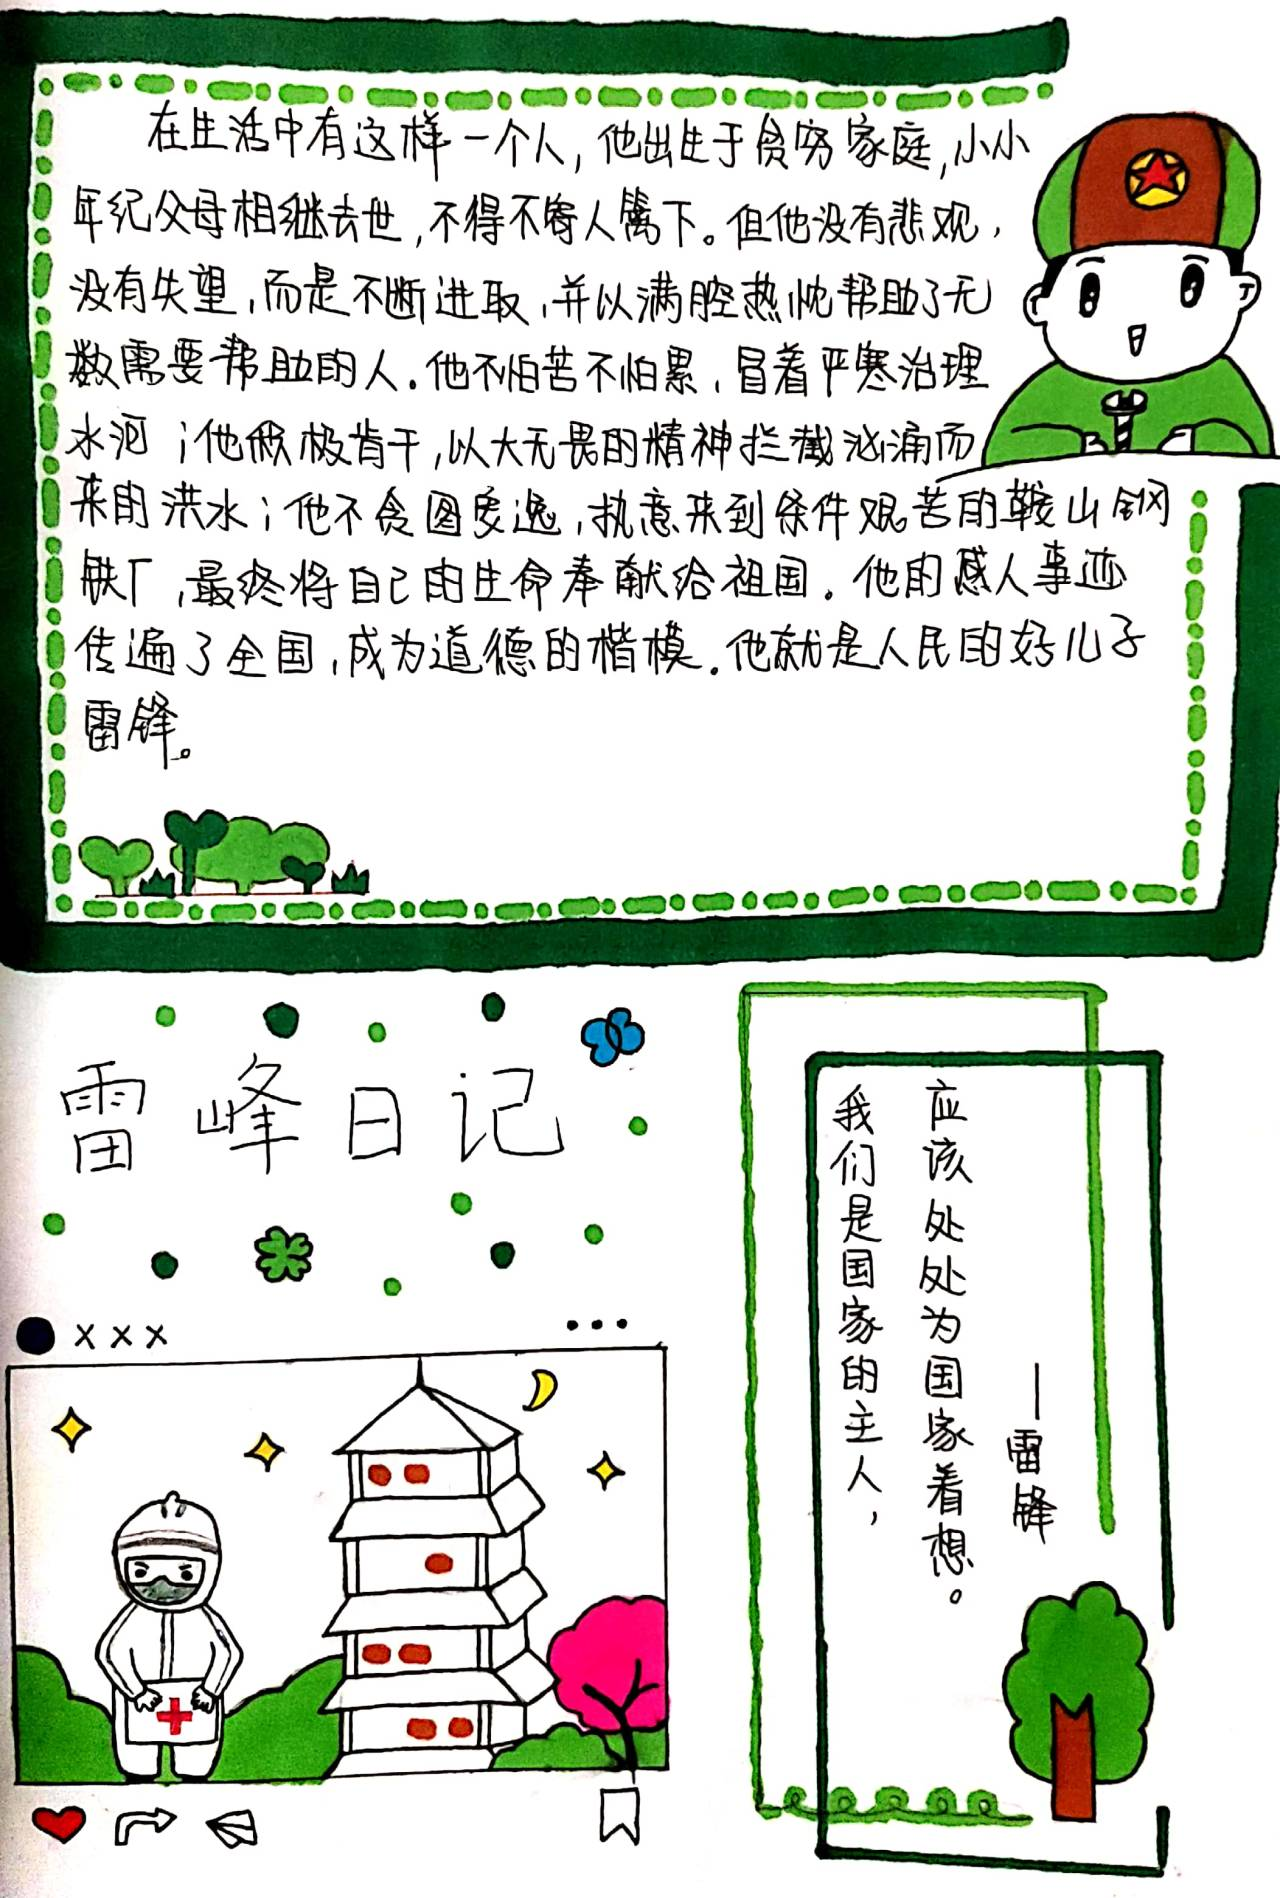 在生活中有这样一个人，他出生于贫穷家庭，小小
年纪父母相继去世，不得不寄人篱下。但他没有悲观，
没有失望，而是不断进取，并以满腔热忱帮助了无
数需要帮助的人。他不怕苦不怕累，冒着严寒治理
水河；他做极肯干，以大无畏的精神拦截汹涌而
来的洪水；他不贪图安逸，执意来到条件艰苦的鞍山钢
铁厂，最终将自己的生命奉献给祖国。他的感人事迹
传遍了全国，成为道德的楷模。他就是人民的好儿子
雷锋。
雷峰日记
xxx
我们是国家的主人，
应该处处为国家着想。
——雷锋